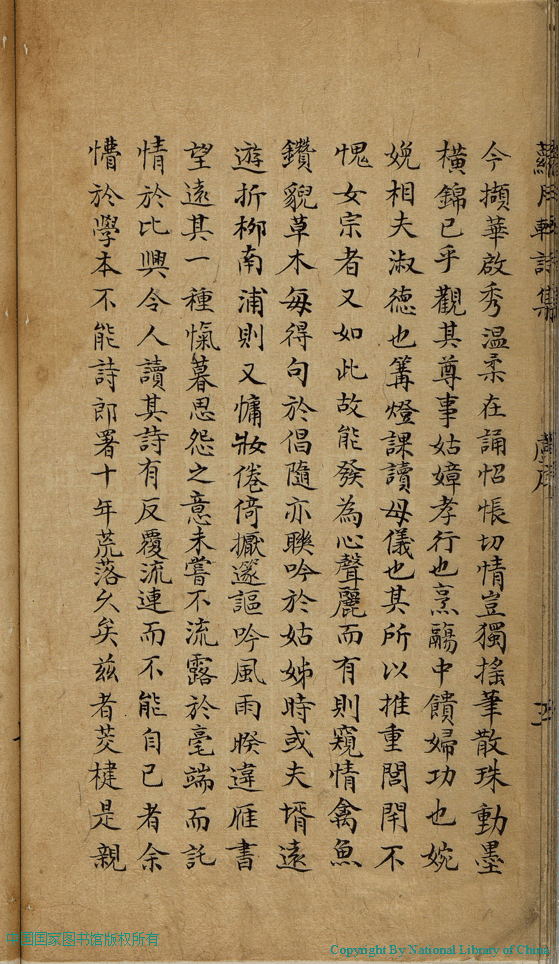 月軒詩集
今擷華啟秀溫柔在誦怊悵切情豈獨搖筆散珠動墨
橫錦已乎觀其尊事姑嫜孝行也烹鬺中饋婦功也婉
娩相夫淑德也篝燈課讀母儀也其所以推重閭閈不
愧女宗者又如此故能發為心聲麗而有則窺情禽魚
鑽貌草木每得句於倡隨亦聯吟於姑姊時或夫壻遠
遊折柳南浦則又慵妝倦倚擫邃謳吟風雨睽違雁書
望遠其一種愾暮思怨之意未嘗不流露於毫端而託
情於比興令人讀其詩有反覆流連而不能自已者余
懵於學本不能詩郎署十年荒落久矣茲者茭楗是親
中国国家图书馆版权所有
Copyright By National Library of China